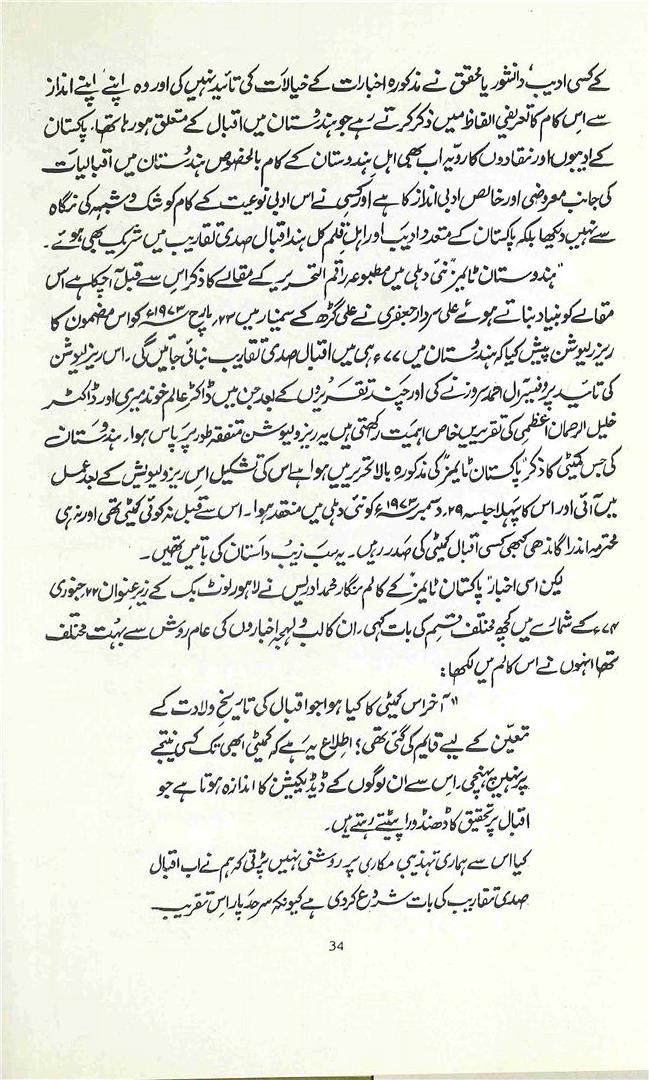 کے کسی ادیب‘ دانشور یا محقق نے مذکورہ اخبارات کے خیالات کی تائید نہیں کی اور وہ اپنے اپنے انداز
سے اس کام کا تعریفی الفاظ میں ذکر کرتے رہے جو ہندوستان میں اقبال کے متعلق ہو رہا تھا۔ پاکستان
کے ادیبوں اور نقادوں کا رویہ اب بھی اہلِ ہندوستان کے کام بالخصوص ہندوستان میں اقبالیات
کی جانب معروضی اور خالص ادبی انداز کا ہے اور کسی نے اس ادبی نوعیت کے کام کو شک و شبہہ کی نگاہ
سے نہیں دیکھا بلکہ پاکستان کے متعدد ادیب اور اہلِ قلم کل ہند اقبال صدی تقاریب میں شریک بھی ہوئے۔
”ہندوستان ٹائمز“ نئی دہلی میں مطبوعہ راقم التحریر کے مقالے کا ذکر اس سے قبل آچکا ہے اس
مقالے کو بنیاد بناتے ہوئے علی سردار جعفری نے علی گڑھ کے سمینار میں ۲۳؍ مارچ ۱۹۷۳ء کو اس مضمون کا
ریزولیوشن پیش کیا کہ ہندوستان میں ۷۷ء ہی میں اقبال صدی تقاریب بنائی جائیں گی۔ اس ریزولیوشن
کی تائید پروفیسر آل احمد سرور نے کی اور چند تقریروں کے بعد جن میں ڈاکٹر عالم خوندمیری اور ڈاکٹر
خلیل الرحمان اعظمی کی تقریریں خاص اہمیت رکھتی ہیں یہ ریزولیوشن متفقہ طور پر پاس ہوا۔ ہندوستان
کی جس کمیٹی کا ذکر ”پاکستان ٹائمز“ کی مذکورہ بالا تحریر میں ہوا ہے اس کی تشکیل اس ریزولیوشن کے بعد عمل
میں آئی اور اس کا پہلا جلسہ ۲۹؍ دسمبر ۱۹۷۳ء کو نئی دہلی میں منعقد ہوا۔ اس سے قبل نہ کوئی کمیٹی تھی اور نہ ہی
محترمہ اندرا گاندھی کبھی کسی اقبال کمیٹی کی صدر رہیں۔ یہ سب زیبِ داستان کی باتیں تھیں۔
لیکن اسی اخبار ”پاکستان ٹائمز“ کے کالم نگار محمد ادریس نے لاہور نوٹ بک کے زیرِ عنوان ۲۲؍ جنوری
۷۴ء کے شمارے میں کچھ مختلف قسم کی بات کہی۔ ان کا لب و لہجہ اخباروں کی عام روش سے بہت مختلف
تھا انہوں نے اس کالم میں لکھا:
”آخر اس کمیٹی کا کیا ہوا جو اقبال کی تاریخِ ولادت کے
تعیّن کے لیے قایم کی گئی تھی؛ اطلاع یہ ہے کہ کمیٹی ابھی تک کسی نتیجے
پر نہیں پہنچی۔ اس سے ان لوگوں کے ڈیڈیکیشن کا اندازہ ہوتا ہے جو
اقبال پر تحقیق کا ڈھنڈورا پیٹتے رہتے ہیں۔
کیا اس سے ہماری تہذیبی مکاری پر روشنی نہیں پڑتی کہ ہم نے اب اقبال
صدی تقاریب کی بات شروع کردی ہے کیونکہ سرحد پار اس تقریب
34